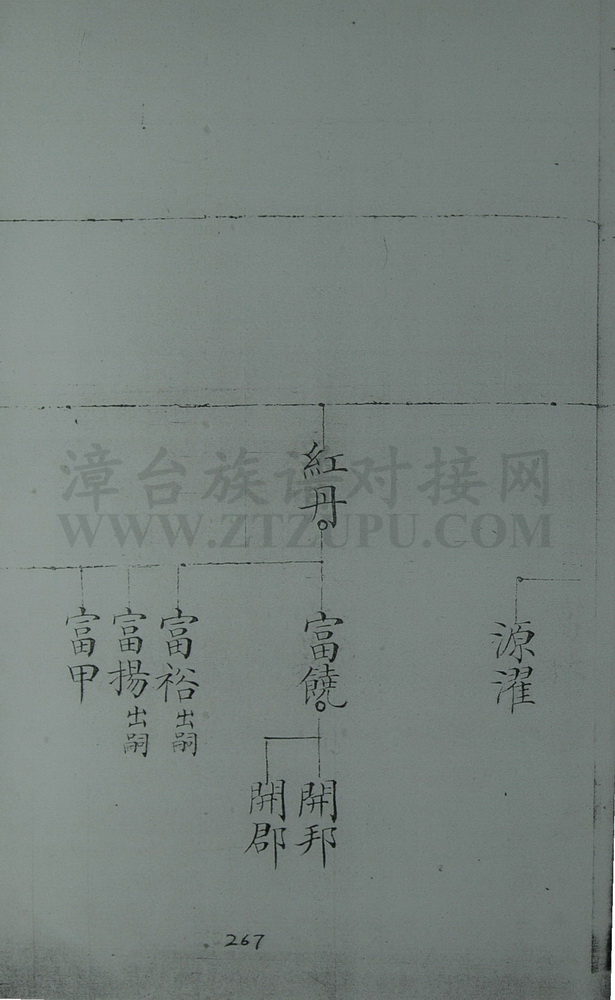 紅丹
源濯
富饒
富裕出嗣
富揚出嗣
富甲
開邦
開郡
267
漳台族谱对接网
WWW.ZTZUPU.COM